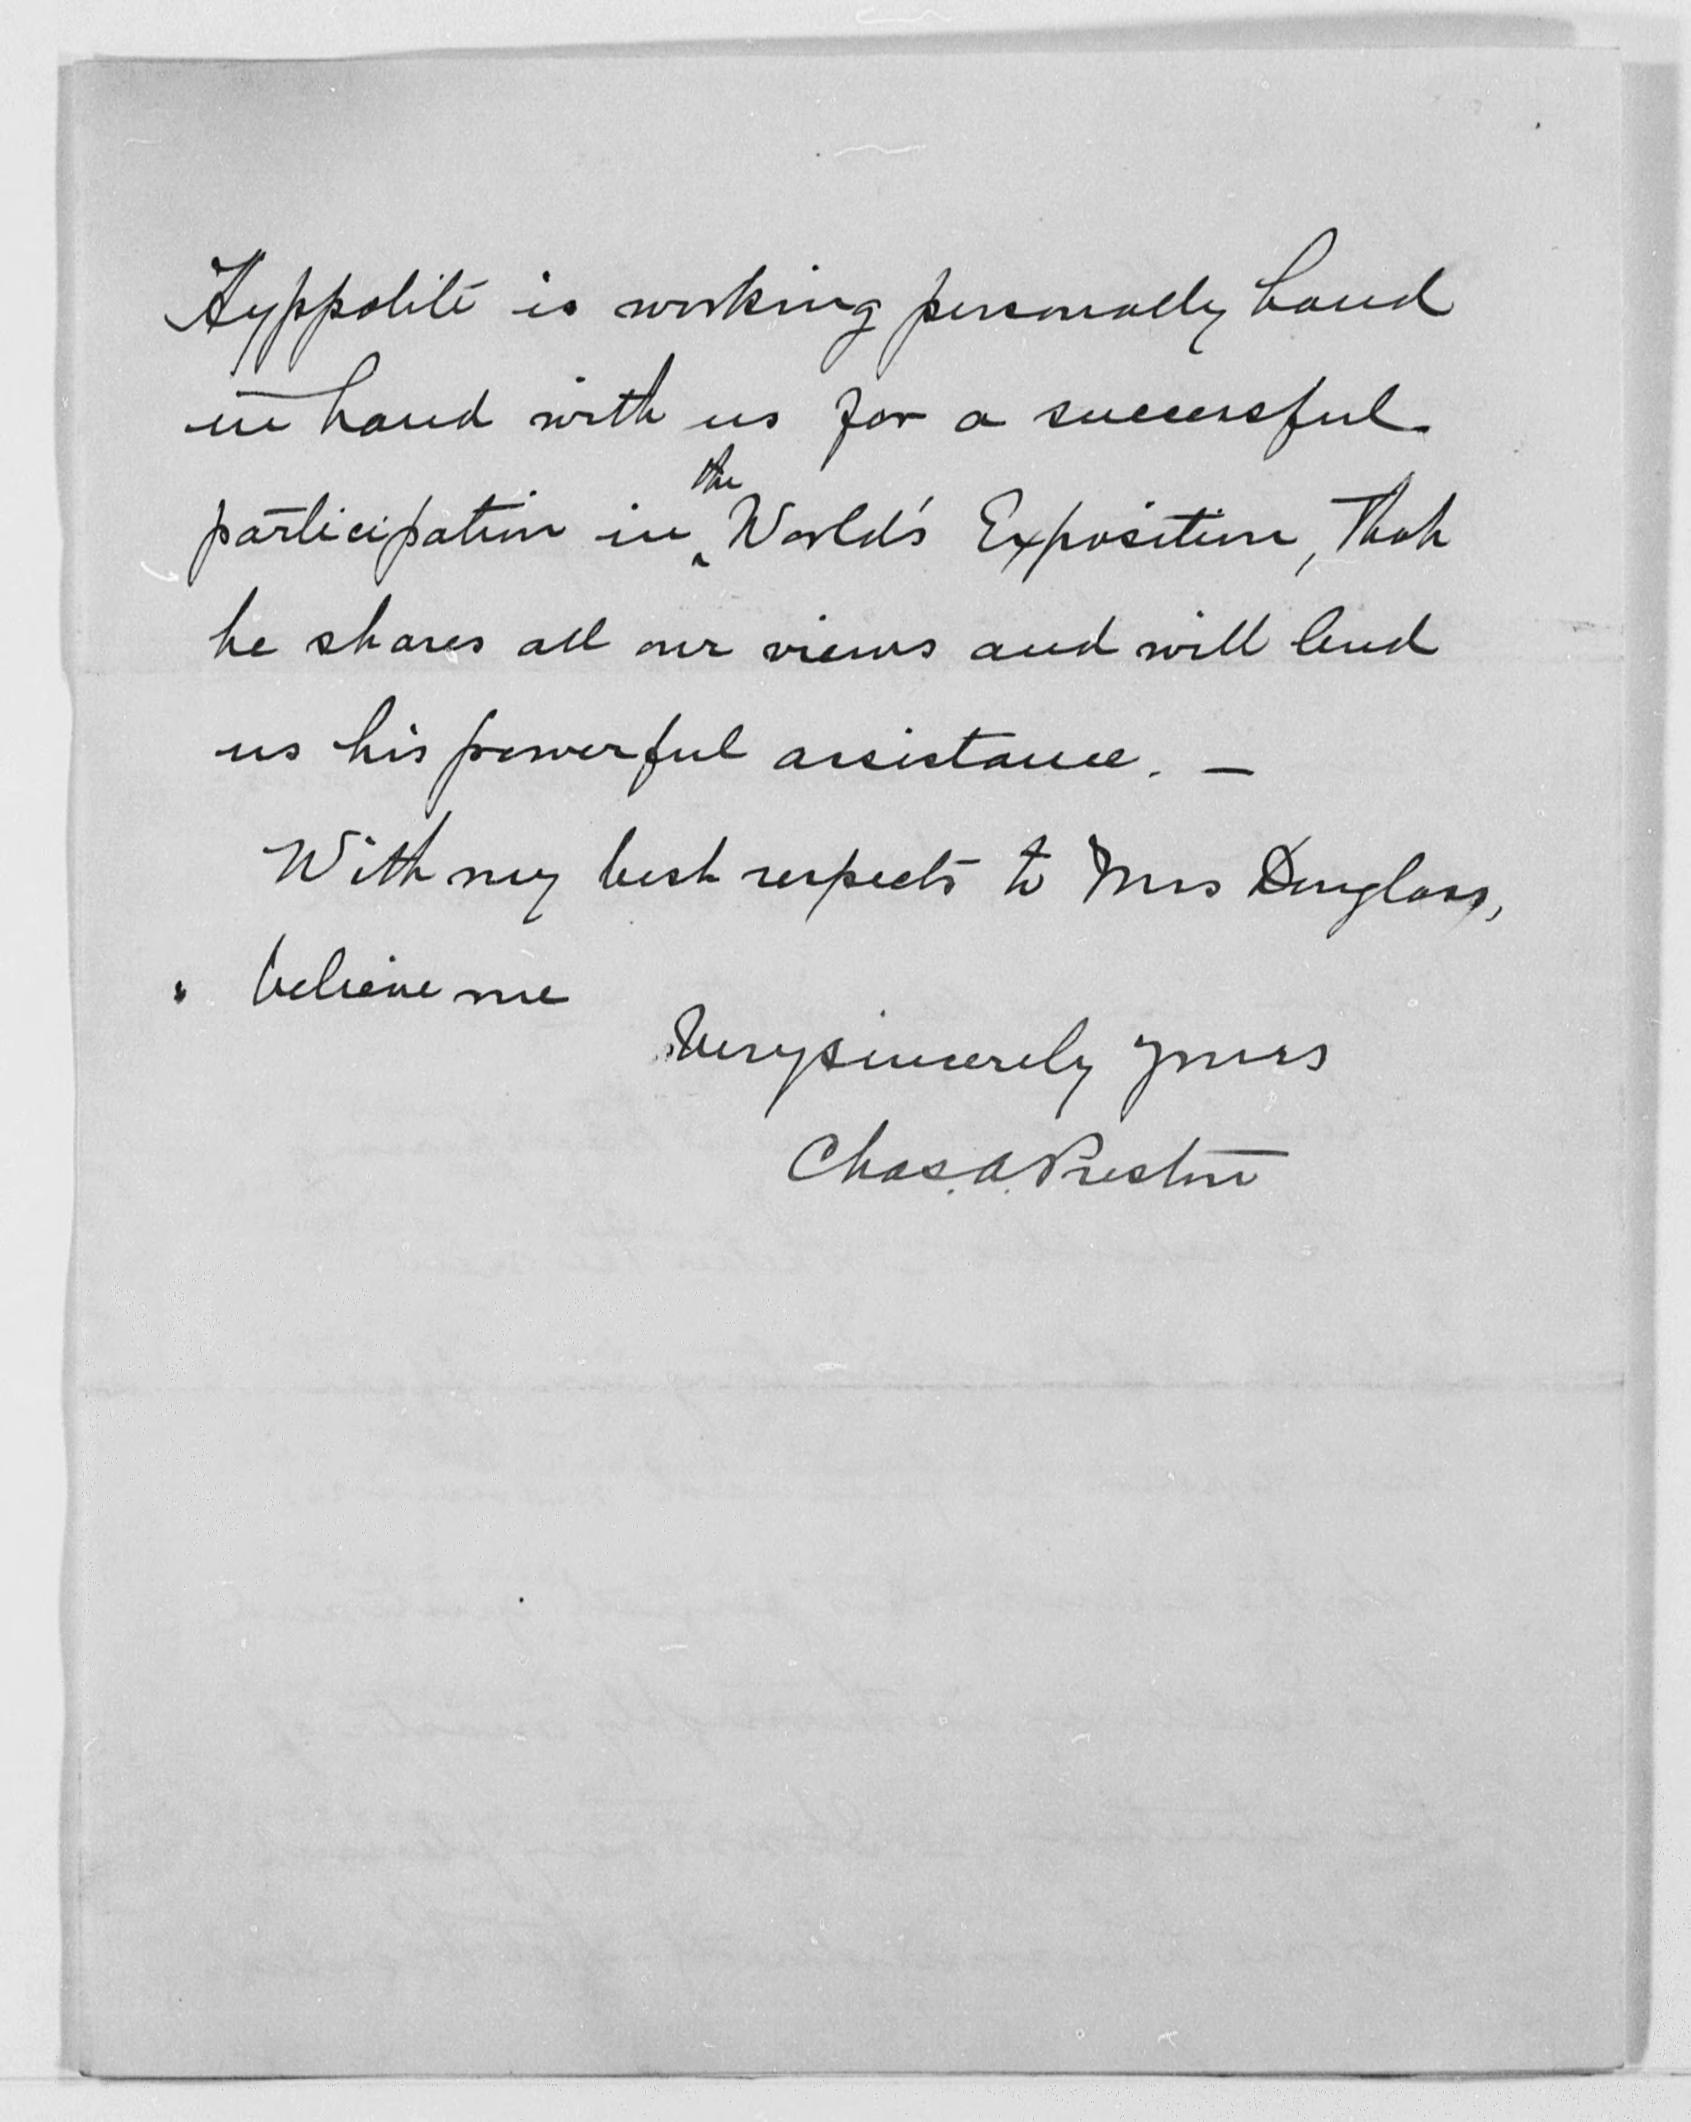 Hyppolite is working personally hand
in hand with us for a successful
participation in the World's Exposition, That
he shares all our views and will lend
us his powerful assistance. —
With my best respects to Mrs Douglass,
believe me
Very sincerely yours
Chas. A. Preston